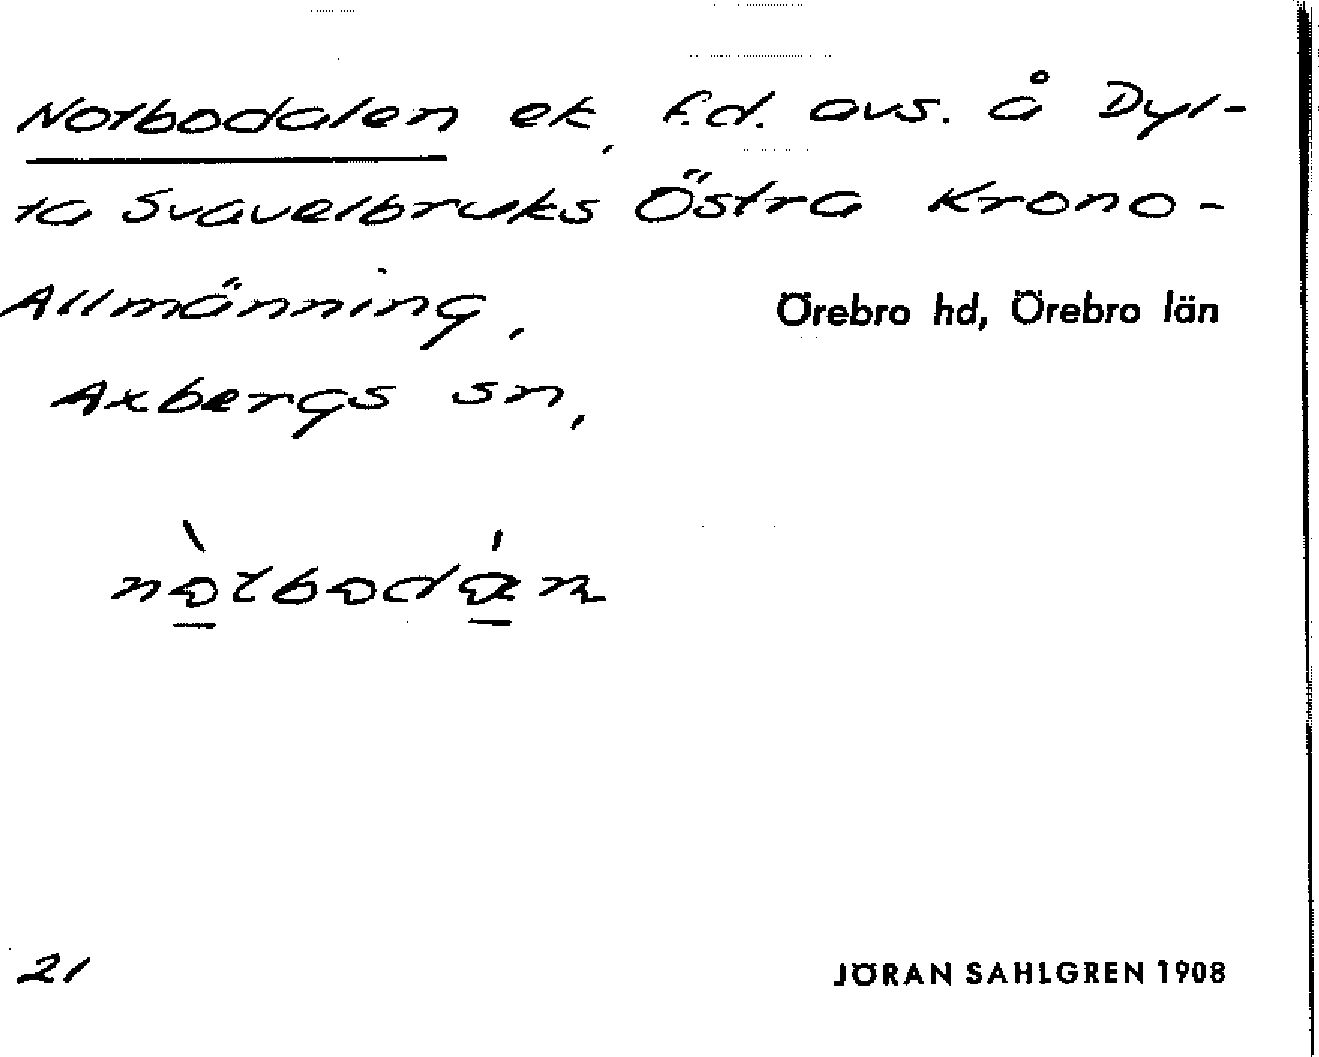 Notbodalen ek, f.d. avs. å Dyl-
ta Svavelbruks Östra Krono-
Allmänning, Örebro hd, Örebro län
Axbergs sn,
nòtbodán
21 JÖRAN SAHLGREN 1908